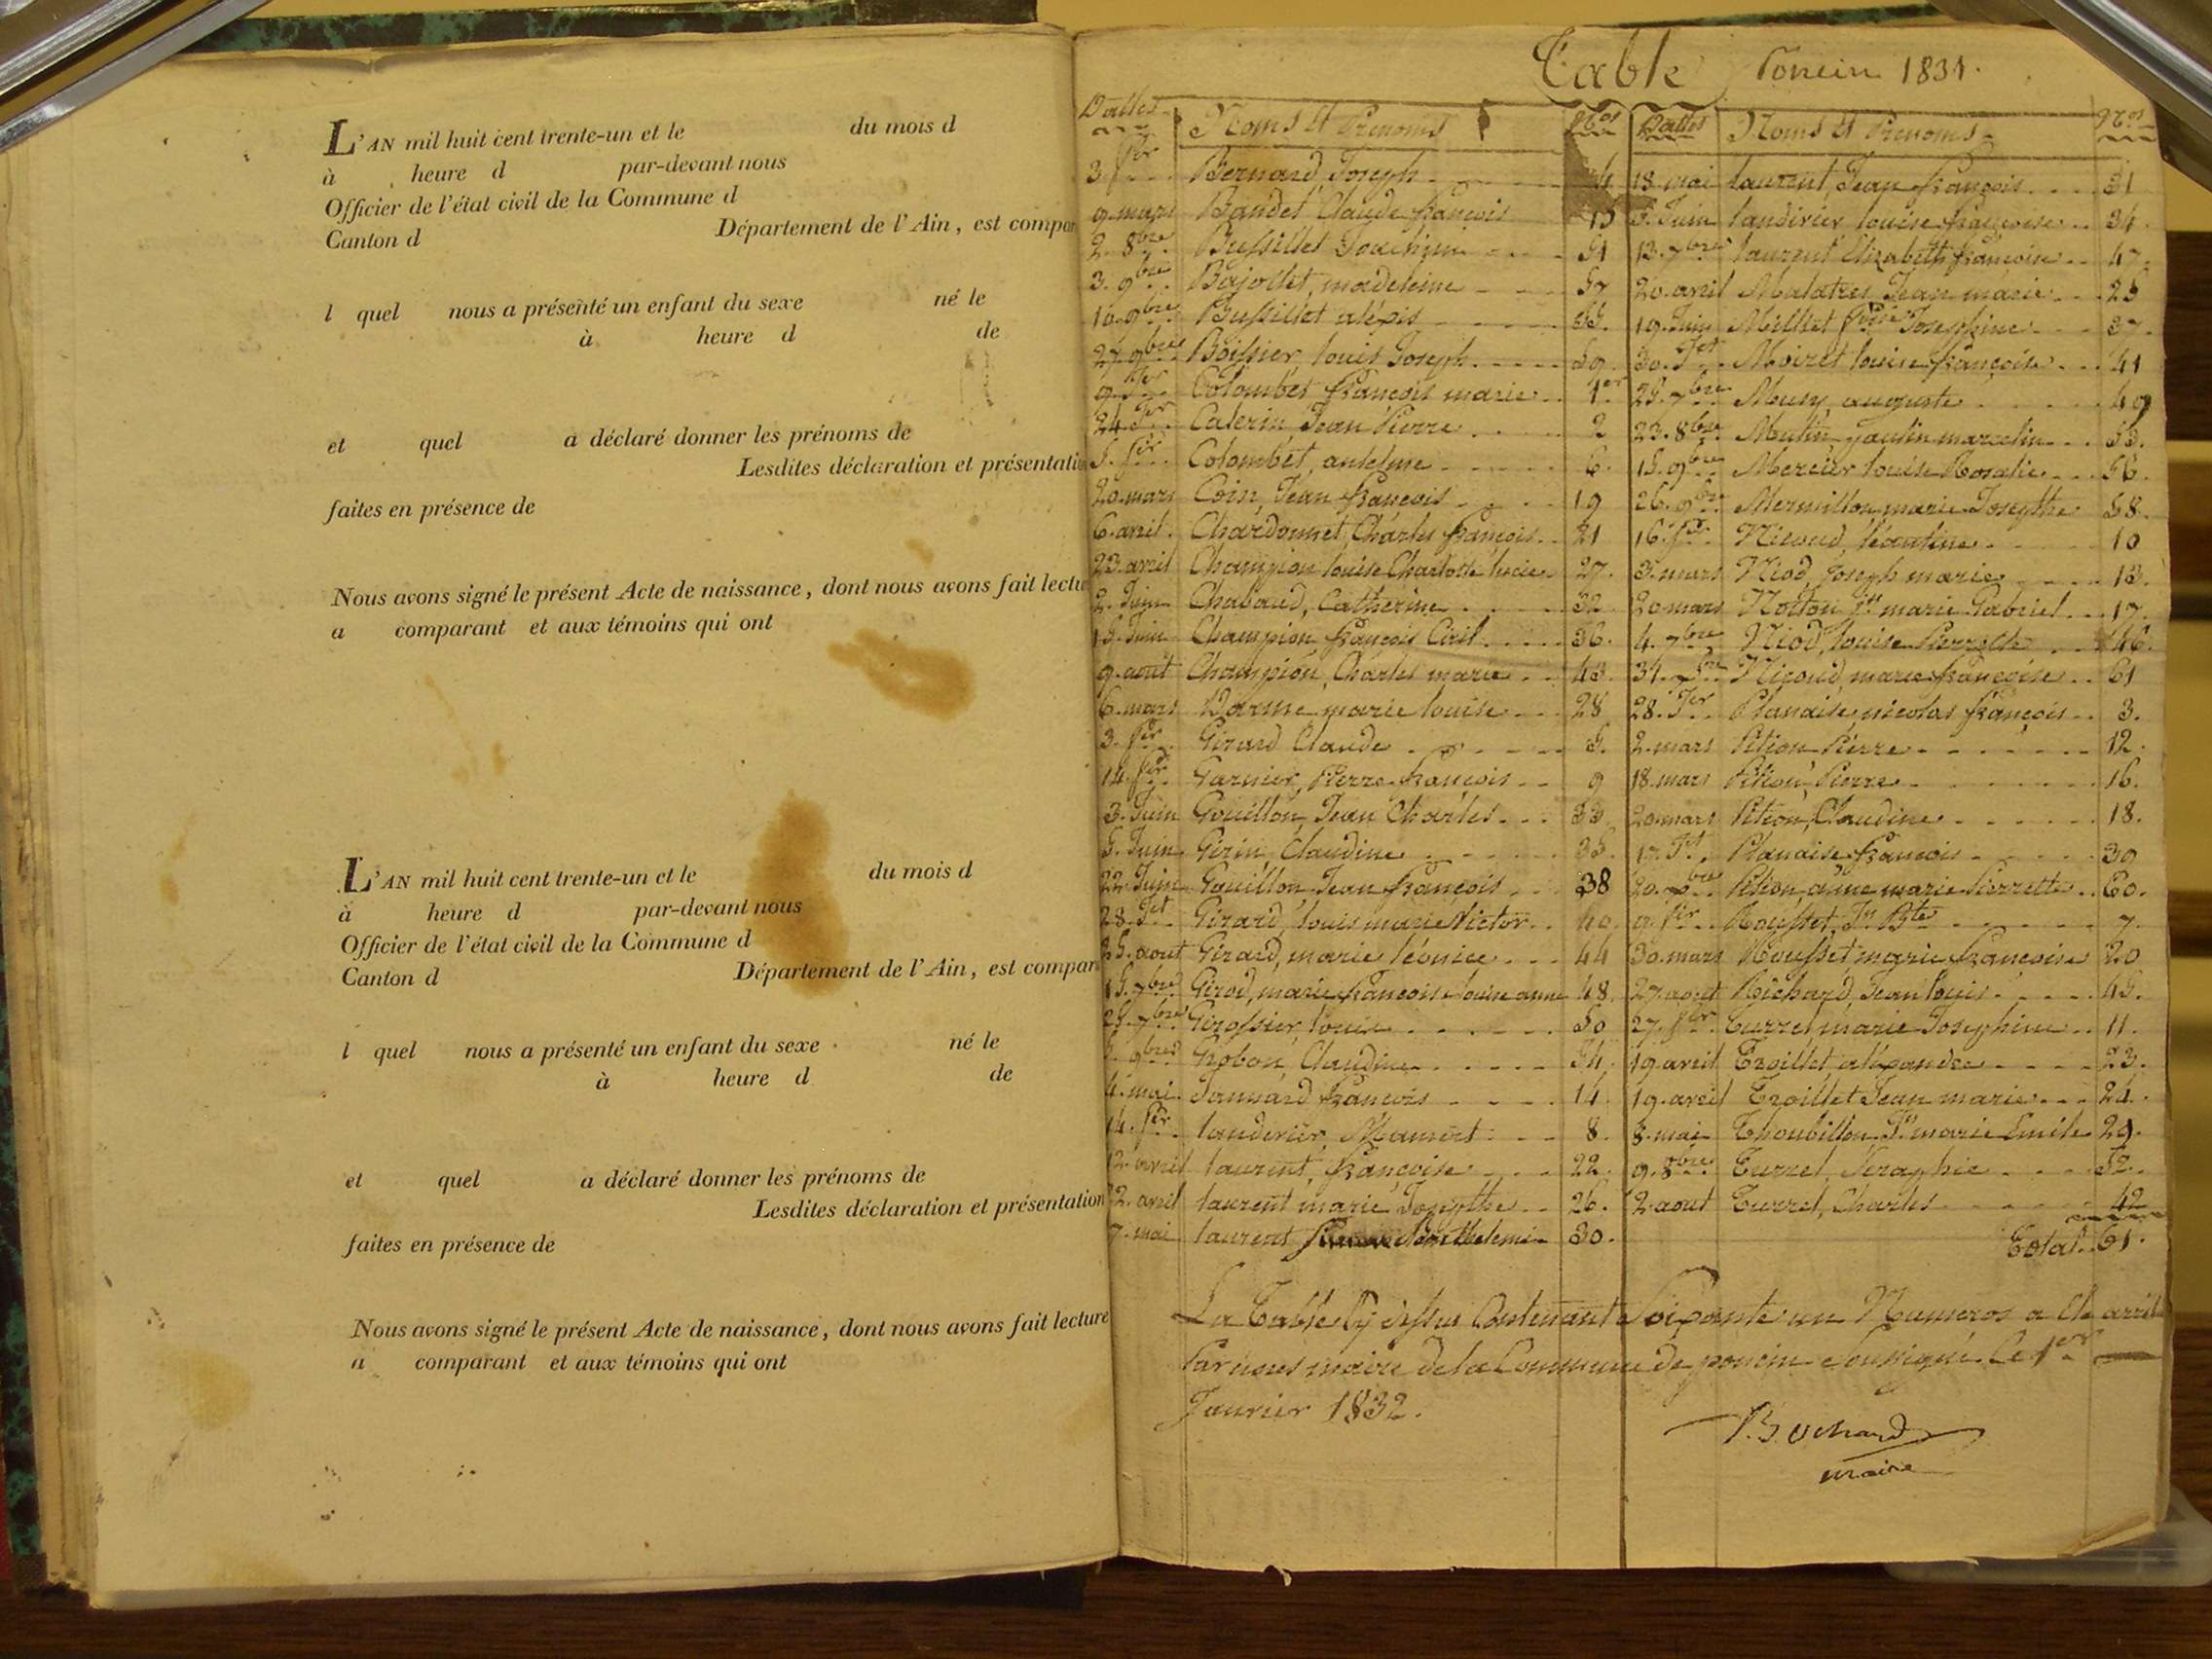 L'AN mil huit cent trente-un et le du mois d
à heure d par-devant nous
Officier de l'état civil de la Commune d
Canton d Département de l'Ain, est compar
l quel nous a présenté un enfant du sexe né le
à heure d de
et quel a déclaré donner les prénoms de
Lesdites déclaration et présentatio
faites en présence de
Nous avons signé le présent Acte de naissance, dont nous avons fait lectu
a comparant et aux témoins qui ont
L'AN mil huit cent trente-un et le du mois d
à heure d par-devant nous
Officier de l'état civil de la Commune d
Canton d Département de l'Ain, est compar
l quel nous a présenté un enfant du sexe né le
à heure d de
et quel a déclaré donner les prénoms de
Lesdites déclaration et présentation
faites en présence de
Nous avons signé le présent Acte de naissance, dont nous avons fait lecture
a comparant et aux témoins qui ont
Table Poncin 1831.
Dattes Noms et Prenoms Nos
3. fer Bernard, Joseph 4
9. mars Baudet Claude françois 15
2. 8bre Bussillet Joachim 51
3. 9bre Bajollet, madeleine
10. 9bre Bussillet alexis 55.
27. 9bre Boissier, louis Joseph 59
9. Jer Colombet françois marie 1er
24. Jer Caterin, Jean Pierre 2
5. fer Colombet, antelme 6.
20. mars Coin, Jean françois 19
6. avril. Chardonnet, Charles françois 21
23. avril Champion louise Charlotte lucie 27.
2. Juin Chabaud, Catherine 32
15. Juin Champion françois Ciril 36.
9. aout Champion, Charles marie 43.
6. mars Darme marie louise 28
3. fer Girard Claude 5.
14. fer Garnier, Pierre françois 9
3. Juin Gouillon, Jean Charles 33
5. Juin Girin, Claudine 35.
22. Juin Gouillon Jean françois 38
28. Jet Girard, louis marie Victor 40
25. aout Girard, marie léonice 44
15. 7bre Girod, marie françoise louise anne 48
25. 7bre Girossier, louis 50
9bre Grobon, Claudine 54.
4. mai. Jannard françois 14.
14. fer. landirier, 8.
12 avril laurent, françoise 22.
22. avril laurent marie Josephte 26.
7. mai laurent Barthelemi 30.
Dattes Noms et Prenoms Nos
18. mai laurent, Jean françois 31
5. Juin landirier louise françoise 34.
13. 7bre laurent Elizabeth françoise 47.
20. avril Malatres Jean marie 25
19. Juin Milliet Josephine 37.
30. Jet Moiret louise françoise 41
25. 7bre Musy, auguste 49
23. 8bre Moulin marcelin 53.
15. 9bre Mercier louise Rosalie 56.
26. 9bre Mermillon marie Josephte 58.
16. fer Nicoud, léontine 10
3. mars Niod, Joseph marie 13.
20 mars Jn marie Gabriel 17.
4. 7bre Niod, louise Pierrette 46.
31. Nicoud marie françoise 61
28. Jer Planaise, nicolas françois 3.
2. mars Pition Pierre 12.
18. mars Pition, Pierre 16.
20. mars Pition, Claudine 18.
Jet. Planaise françois 39
20. Pition anne marie Pierrette 60.
9. fer Rousset, Jn Bte 7.
30. mars Rousset marie françoise 20
27. aout Richard, Jean louis 45.
27. fer. Turrel marie Josephine 11.
19. avril Troillet alexandre 23.
19. avril Troillet Jean marie 24.
8. mai Thoubillon Jn marie Emile 29.
9. 8bre Turrel, Seraphie 52.
2. aout Turrel, Charles 42
Total 61.
La Table Cy dessus Contenant Soixante un Numeros a été arrêté
Par nous maire de la Commune de poncin soussigné. le 1er
Janvier 1832.
maire